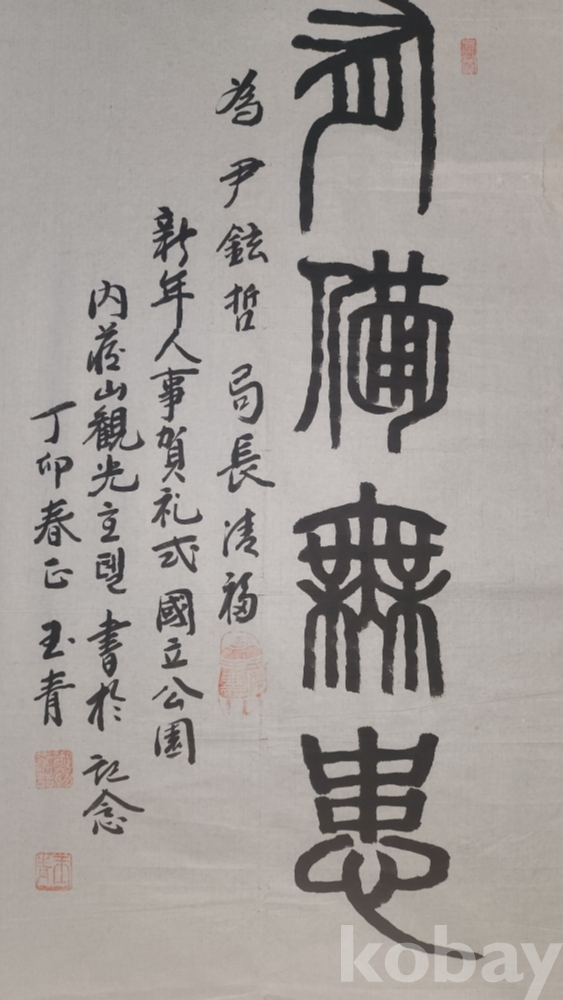 有備無患
為尹鉉哲局長清福
新年人事賀礼式國立公園
内藏山観光호텔書於記念
丁卯春正玉青
kobay